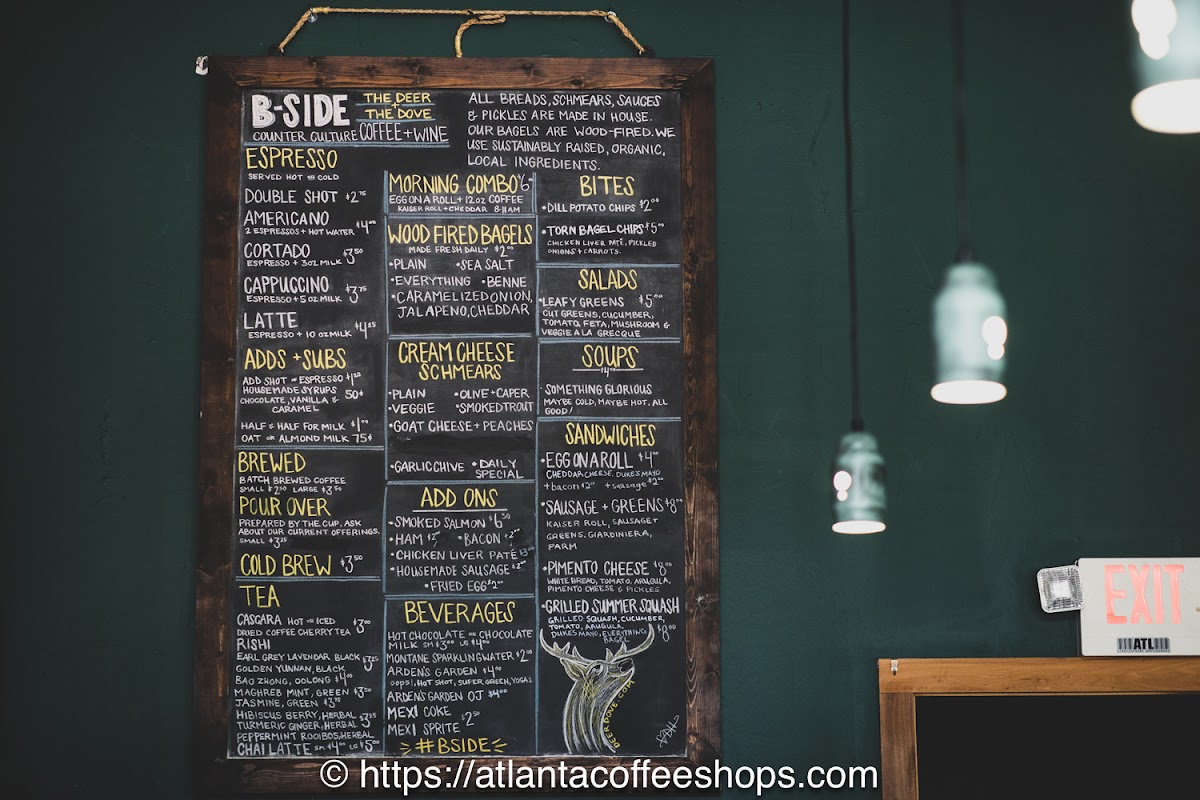 B-SIDE
THE DEER
+
THE DOVE
COUNTER CULTURE COFFEE + WINE
ALL BREADS, SCHMEARS, SAUCES
& PICKLES ARE MADE IN HOUSE.
OUR BAGELS ARE WOOD-FIRED. WE
USE SUSTAINABLY RAISED, ORGANIC,
LOCAL INGREDIENTS.
ESPRESSO
SERVED HOT OR COLD
DOUBLE SHOT $2.75
AMERICANO
2 ESPRESSOS + HOT WATER $4.00
CORTADO
ESPRESSO + 3 OZ MILK $3.50
CAPPUCCINO
ESPRESSO + 5 OZ MILK $3.75
LATTE
ESPRESSO + 10 OZ MILK $4.25
ADDS + SUBS
ADD SHOT OF ESPRESSO $1.25
HOUSEMADE SYRUPS 50¢
CHOCOLATE, VANILLA &
CARAMEL
HALF & HALF FOR MILK $1.00
OAT OR ALMOND MILK 75¢
BREWED
BATCH BREWED COFFEE
SMALL $2.50 LARGE $3.50
POUR OVER
PREPARED BY THE CUP. ASK
ABOUT OUR CURRENT OFFERINGS.
SMALL $3.25
COLD BREW $3.50
TEA
CASCARA HOT OR ICED $3.00
DRIED COFFEE CHERRY TEA
RISHI
EARL GREY LAVENDAR BLACK $3.25
GOLDEN YUNNAN, BLACK
BAO ZHONG, OOLONG $4.00
MAGHREB MINT, GREEN $3.50
JASMINE, GREEN $3.75
HIBISCUS BERRY, HERBAL $3.25
TURMERIC GINGER, HERBAL
PEPPERMINT ROOIBOS, HERBAL
CHAI LATTE SM $4.00 LG $5.00
MORNING COMBO $6
EGG ON A ROLL + 12 OZ COFFEE
KAISER ROLL + CHEDDAR 8-11AM
WOOD FIRED BAGELS
MADE FRESH DAILY $2.00
•PLAIN •SEA SALT
•EVERYTHING •BENNE
•CARAMELIZED ONION,
JALAPENO, CHEDDAR
CREAM CHEESE
SCHMEARS
•PLAIN •OLIVE + CAPER
•VEGGIE •SMOKED TROUT
•GOAT CHEESE + PEACHES
•GARLIC CHIVE •DAILY
SPECIAL
ADD ONS
•SMOKED SALMON $6.50
•HAM $2 •BACON $2
•CHICKEN LIVER PATE $3.00
•HOUSEMADE SAUSAGE $2
•FRIED EGG $2.00
BEVERAGES
HOT CHOCOLATE OR CHOCOLATE
MILK SM $3.00 LG $4.00
MONTANE SPARKLING WATER $2.00
ARDEN'S GARDEN $4.00
OOPS!, HOT SHOT, SUPER GREEN, YOGA
ARDEN'S GARDEN OJ $4.00
MEXI COKE
MEXI SPRITE $2.50
#BSIDE
BITES
•DILL POTATO CHIPS $2.00
•TORN BAGEL CHIPS $5.00
CHICKEN LIVER PATÉ, PICKLED
ONIONS + CARROTS.
SALADS
•LEAFY GREENS $5.00
CUT GREENS, CUCUMBER,
TOMATO, FETA, MUSHROOM &
VEGGIE A LA GRECQUE
SOUPS
$4.00
•SOMETHING GLORIOUS
MAYBE COLD, MAYBE HOT. ALL
GOOD!
SANDWICHES
•EGG ON A ROLL $4.00
CHEDDAR CHEESE, DUKES MAYO
+bacon $2.00 +sausage $2.00
•SAUSAGE + GREENS $8.00
KAISER ROLL, SAUSAGE,
GREENS, GIARDINIERA,
PARM
•PIMENTO CHEESE $8.00
WHITE BREAD, TOMATO, ARUGULA,
PIMENTO CHEESE & PICKLES
•GRILLED SUMMER SQUASH
GRILLED SQUASH, CUCUMBER,
TOMATO, ARUGULA,
DUKES MAYO, EVERYTHING
BAGEL $8.00
DEERDOVE.COM
EXIT
ATL
© https://atlantacoffeeshops.com